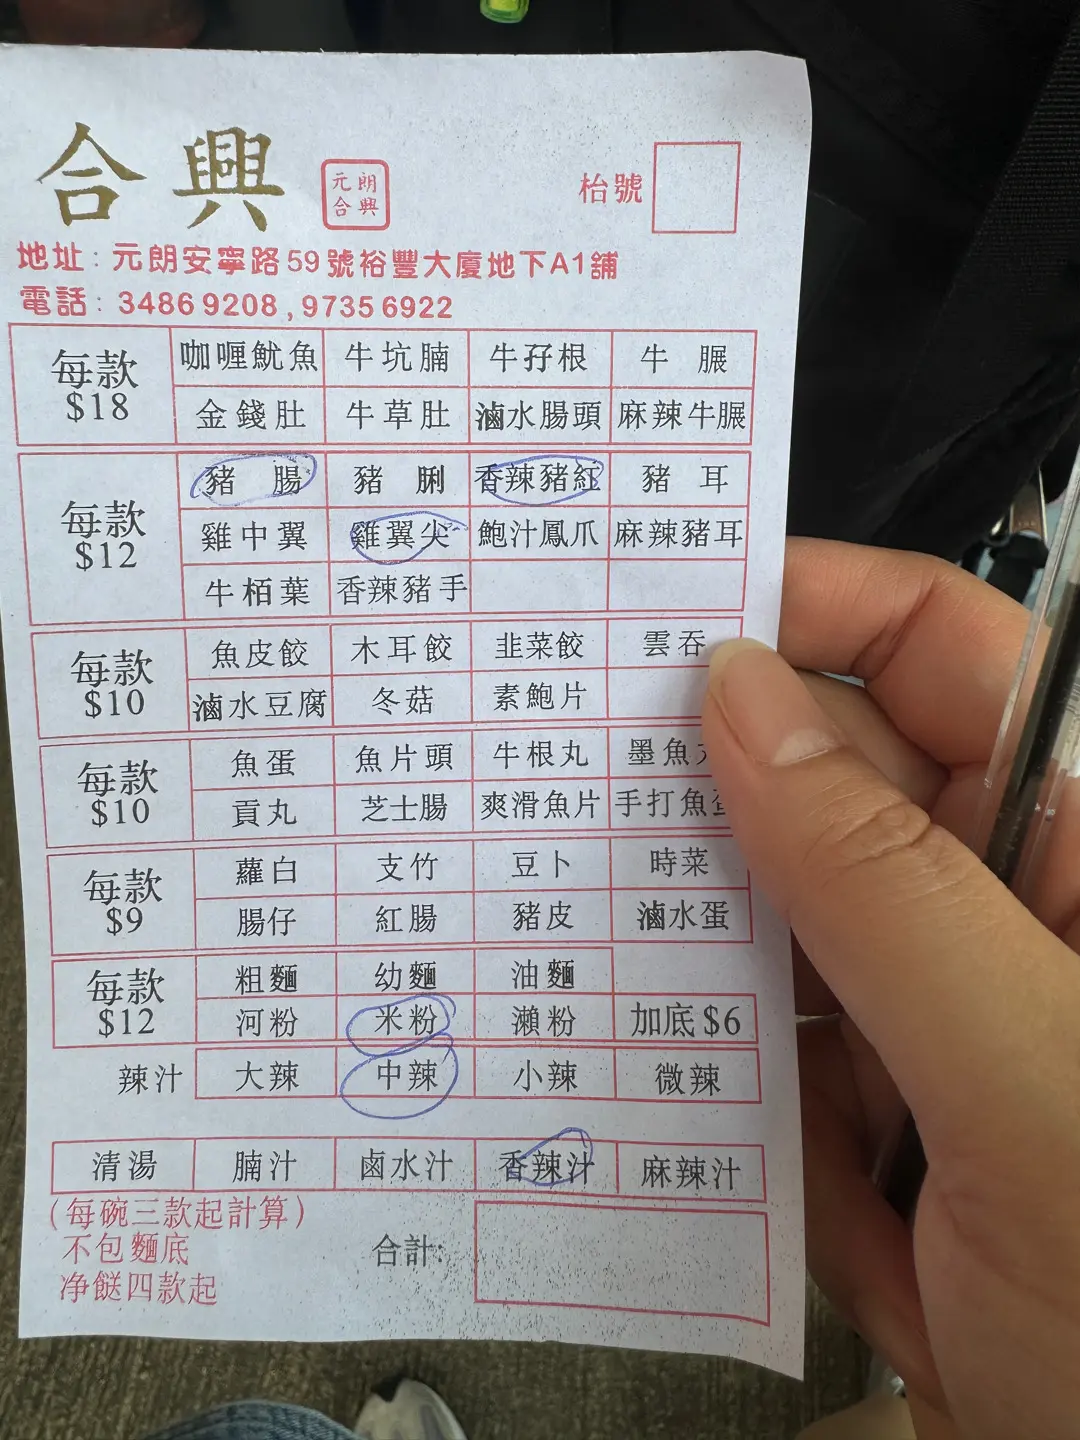 合興 元朗合興 枱號
地址：元朗安寧路59號裕豐大廈地下A1舖
電話：3486 9208, 9735 6922
每款 $18
咖喱魷魚 牛坑腩 牛孖根 牛 𦟌
金錢肚 牛草肚 滷水腸頭 麻辣牛𦟌
每款 $12
豬 腸 豬 脷 香辣豬紅 豬 耳
雞中翼 雞翼尖 鮑汁鳳爪 麻辣豬耳
牛栢葉 香辣豬手
每款 $10
魚皮餃 木耳餃 韭菜餃 雲吞
滷水豆腐 冬菇 素鮑片
每款 $10
魚蛋 魚片頭 牛根丸 墨魚
貢丸 芝士腸 爽滑魚片 手打魚蛋
每款 $9
蘿白 支竹 豆卜 時菜
腸仔 紅腸 豬皮 滷水蛋
每款 $12
粗麵 幼麵 油麵
河粉 米粉 瀨粉 加底 $6
辣汁 大辣 中辣 小辣 微辣
清湯 腩汁 鹵水汁 香辣汁 麻辣汁
(每碗三款起計算)
不包麵底 合計:
净餸四款起